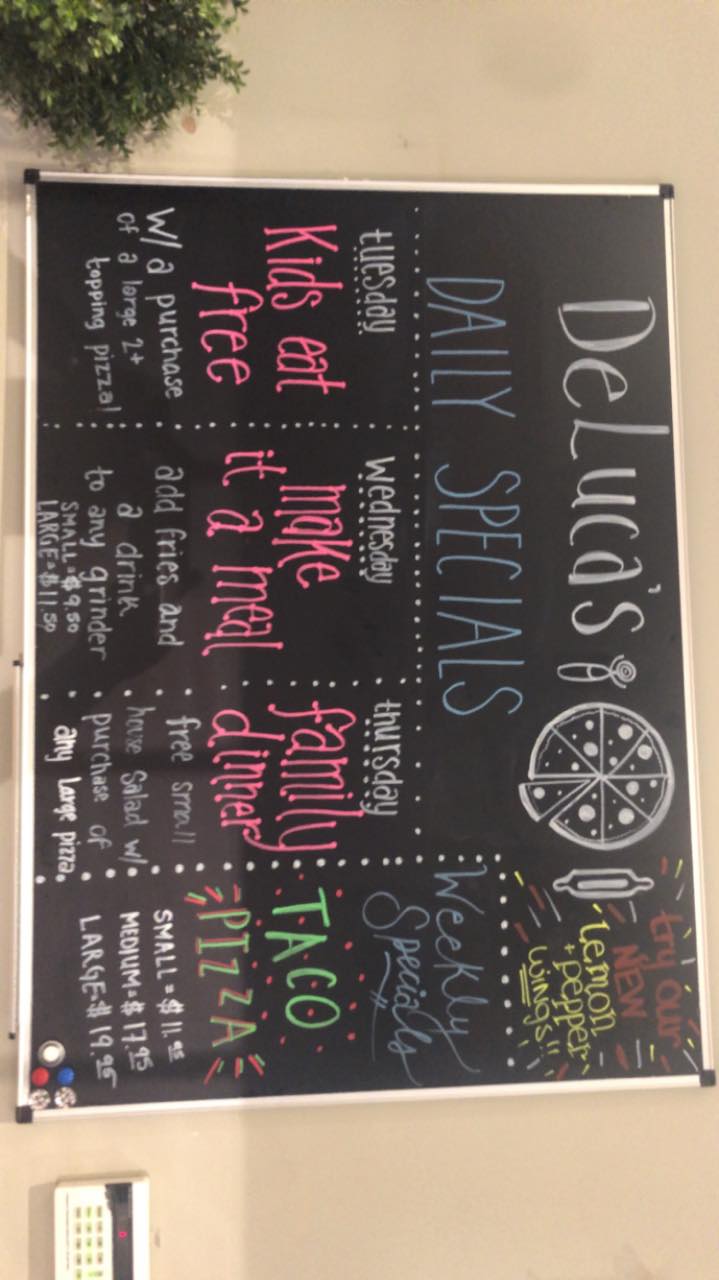 DeLuca's
try our
NEW
Lemon
+ pepper
WINGS!!
DAILY SPECIALS
tuesday
Kids eat
free
W/ a purchase
of a large 2+
topping pizza!
wednesday
make
it a meal
add fries and
a drink
to any grinder
SMALL = $9.50
LARGE = $11.50
thursday
family
dinner
free small
house Salad w/
purchase of
any Large pizza
Weekly
Specials
TACO
PIZZA
SMALL = $11.95
MEDIUM = $17.95
LARGE = $19.95